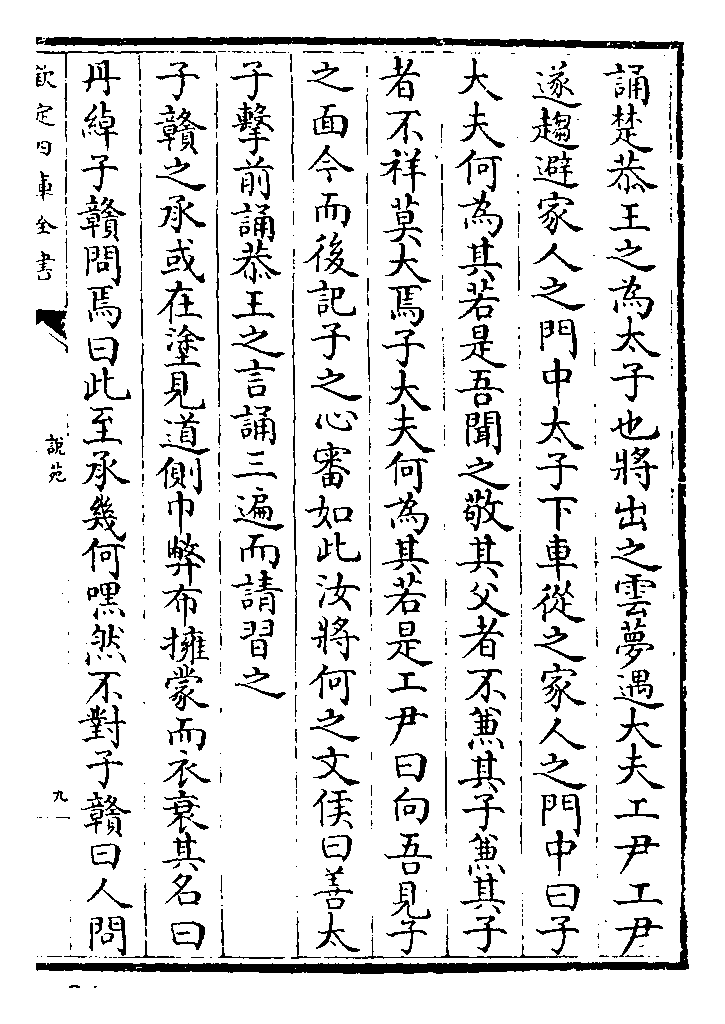 誦楚恭王之為太子也將出之雲夢遇大夫工尹工尹
遂趨避家人之門中太子下車從之家人之門中曰子
大夫何為其若是吾聞之敬其父者不兼其子兼其子
者不祥莫大焉子大夫何為其若是工尹曰向吾見子
之面今而後記子之心審如此汝將何之文侯曰善太
子擊前誦恭王之言誦三遍而請習之
子贛之承或在塗見道側巾弊布擁蒙而衣衰其名曰
丹綽子贛問焉曰此至承幾何嘿然不對子贛曰人問
欽定四庫全書
說苑
九